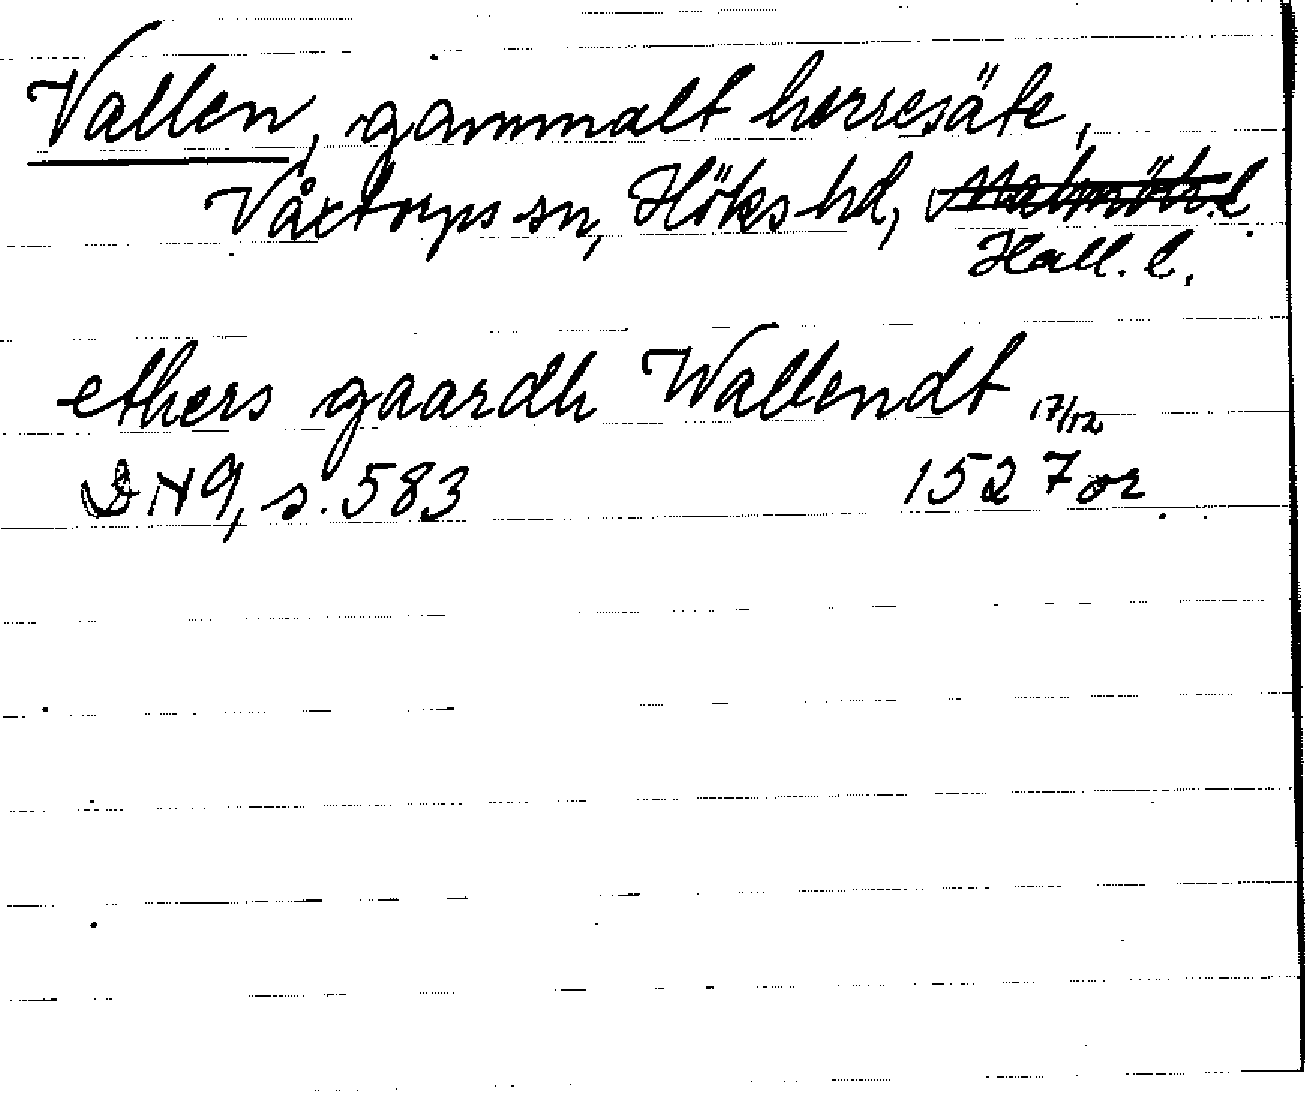 Vallen, gammalt herresäte,
Våxtorps sn, Höks hd, Malmöh. l
Hall. l.
ethers gaardh Wallendt 17/12
DN 9, s. 583 1527 or